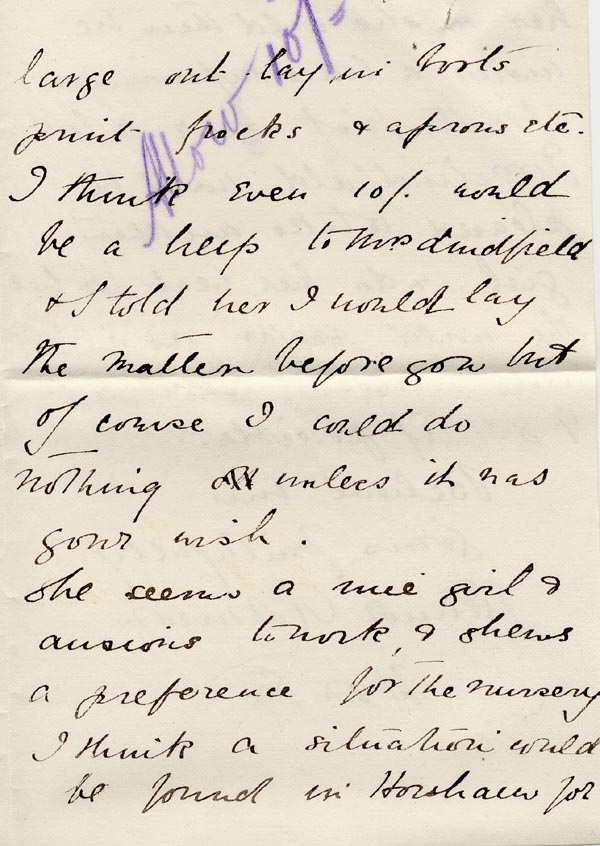 Allow 10/-
large out-lay in boots
print frocks & aprons etc.
I think even 10/. would
be a help to Mrs Lindfield
& I told her I would lay
the matter before you but
of course I could do
nothing unless it was
your wish.
She seems a nice girl &
anxious to work, & shews
a preference for the nursery
I think a situation could
be found in Horsham for